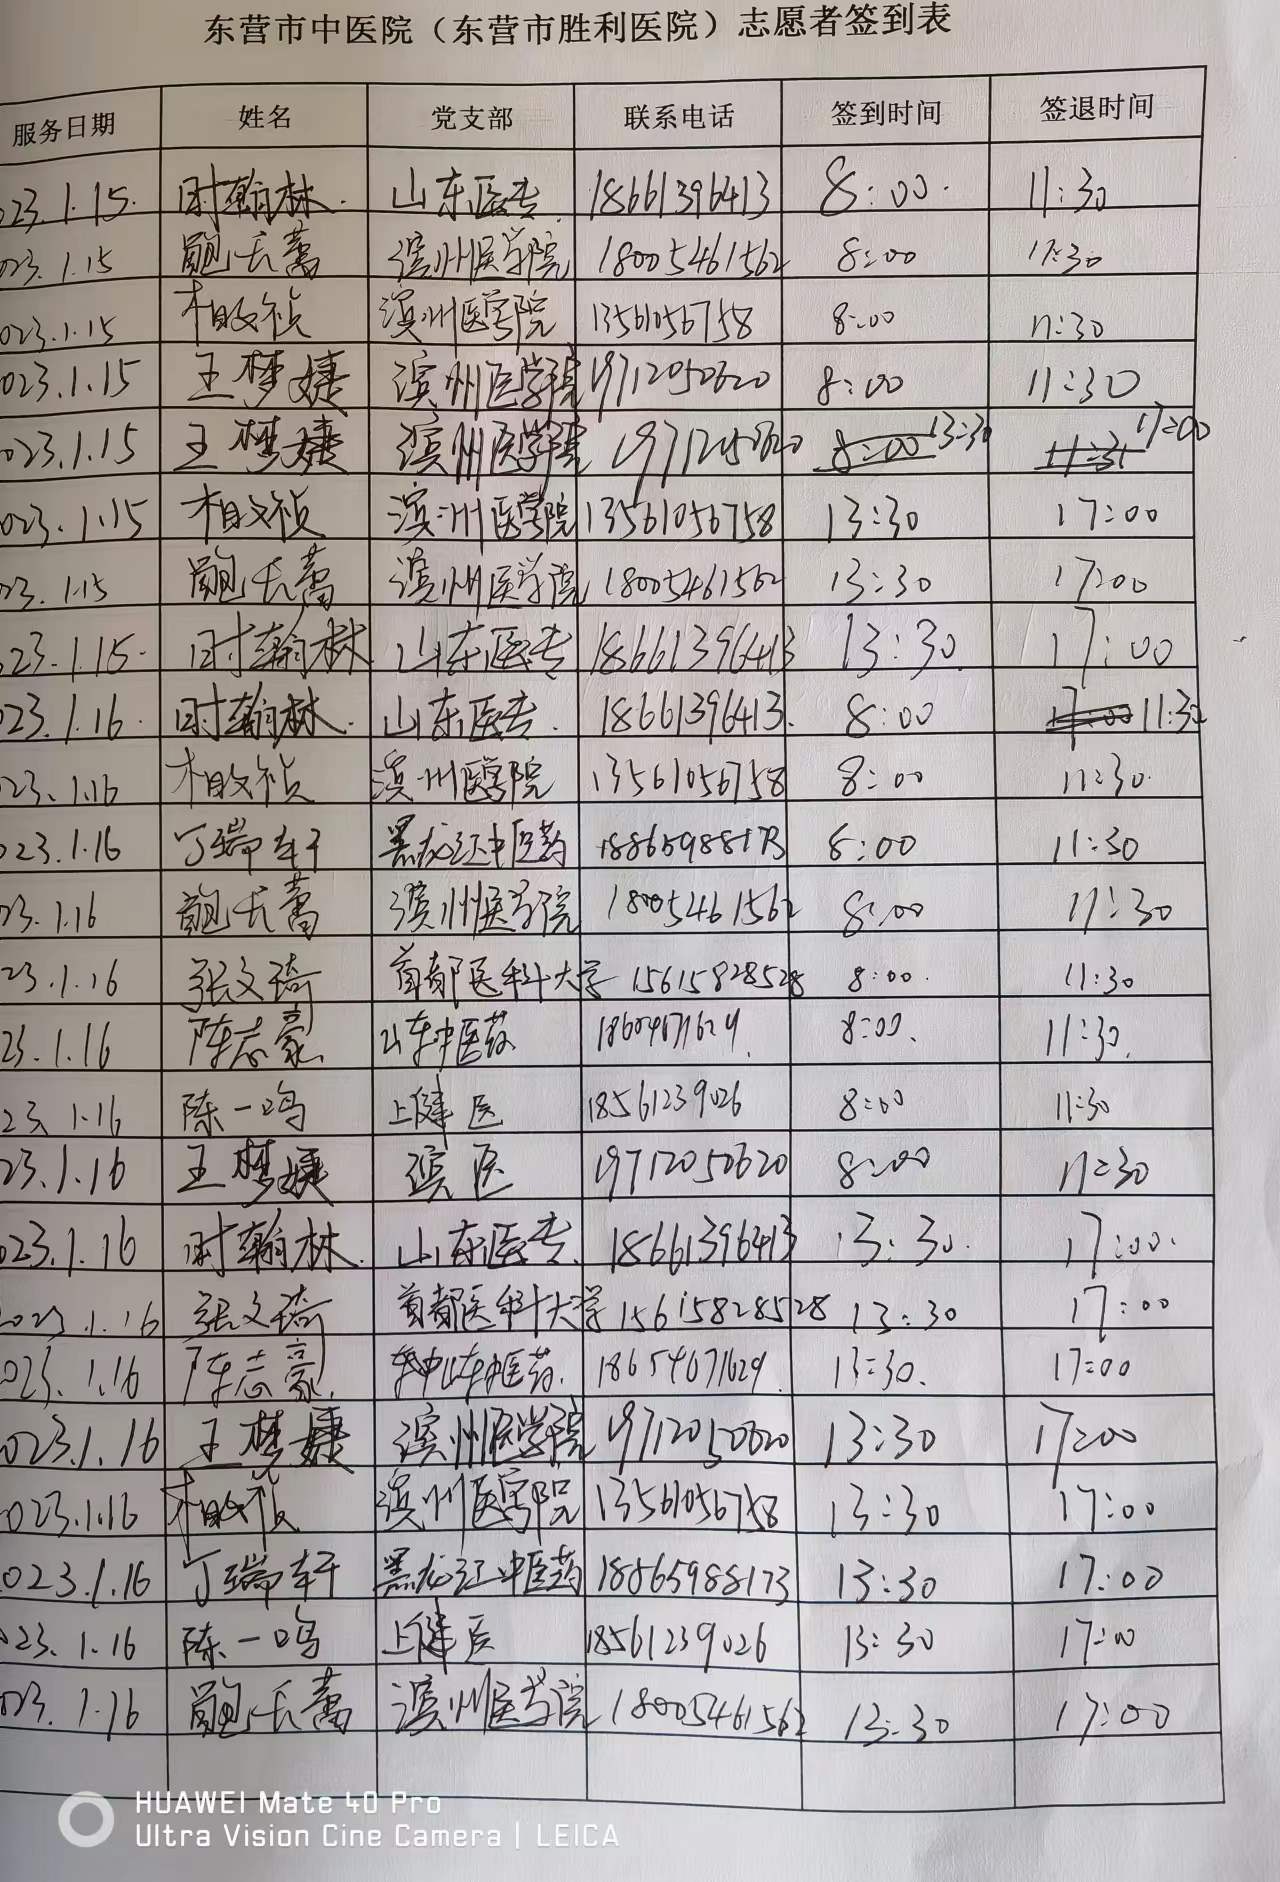 东营市中医院（东营市胜利医院）志愿者签到表
服务日期 姓名 党支部 联系电话 签到时间 签退时间
023.1.15. 时翰林. 山东医专. 18661396413 8:00. 11:30
023.1.15 鲍长蒿 滨州医学院 18005461562 8:00 11:30
023.1.15 相政祯 滨州医学院 13561056758 8:00 11:30
023.1.15 王梦婕 滨州医学院 19712050620 8:00 11:30
023.1.15 王梦婕 滨州医学院 19712050620 8:00 13:30 11:30 17:00
023.1.15 相政祯 滨州医学院 13561056758 13:30 17:00
023.1.15 鲍长蒿 滨州医学院 18005461562 13:30 17:00
023.1.15. 时翰林 山东医专 18661396413 13:30. 17:00
023.1.16. 时翰林. 山东医专. 18661396413. 8:00 17:00 11:30
023.1.16 相政祯 滨州医学院 13561056758 8:00 11:30.
023.1.16 丁瑞轩 黑龙江中医药 18865988173 8:00 11:30
023.1.16 鲍长蒿 滨州医学院 18005461562 8:00 11:30
23.1.16 张文琦 首都医科大学 15615828528 8:00. 11:30
23.1.16 陈志豪 山东中医药 8:00. 11:30.
23.1.16 陈一鸣 上健医 18561239026 8:00 11:30
23.1.16 王梦婕 滨医 19712050620 8:00 11:30
023.1.16 时翰林. 山东医专. 18661396413 13:30. 17:00.
2023.1.16 张文琦 首都医科大学 15615828528 13:30 17:00
023.1.16 陈志豪. 山东中医药. 18654671629. 13:30. 17:00
023.1.16 王梦婕 滨州医学院 19712050620 13:30 17:00
2023.1.16 相政祯 滨州医学院 13561056758 13:30 17:00
2023.1.16 丁瑞轩 黑龙江中医药 18865988173 13:30 17:00
023.1.16 陈一鸣 上健医 18561239026 13:30 17:00
023.1.16 鲍长蒿 滨州医学院 18005461562 13:30 17:00
HUAWEI Mate 40 Pro
Ultra Vision Cine Camera | LEICA